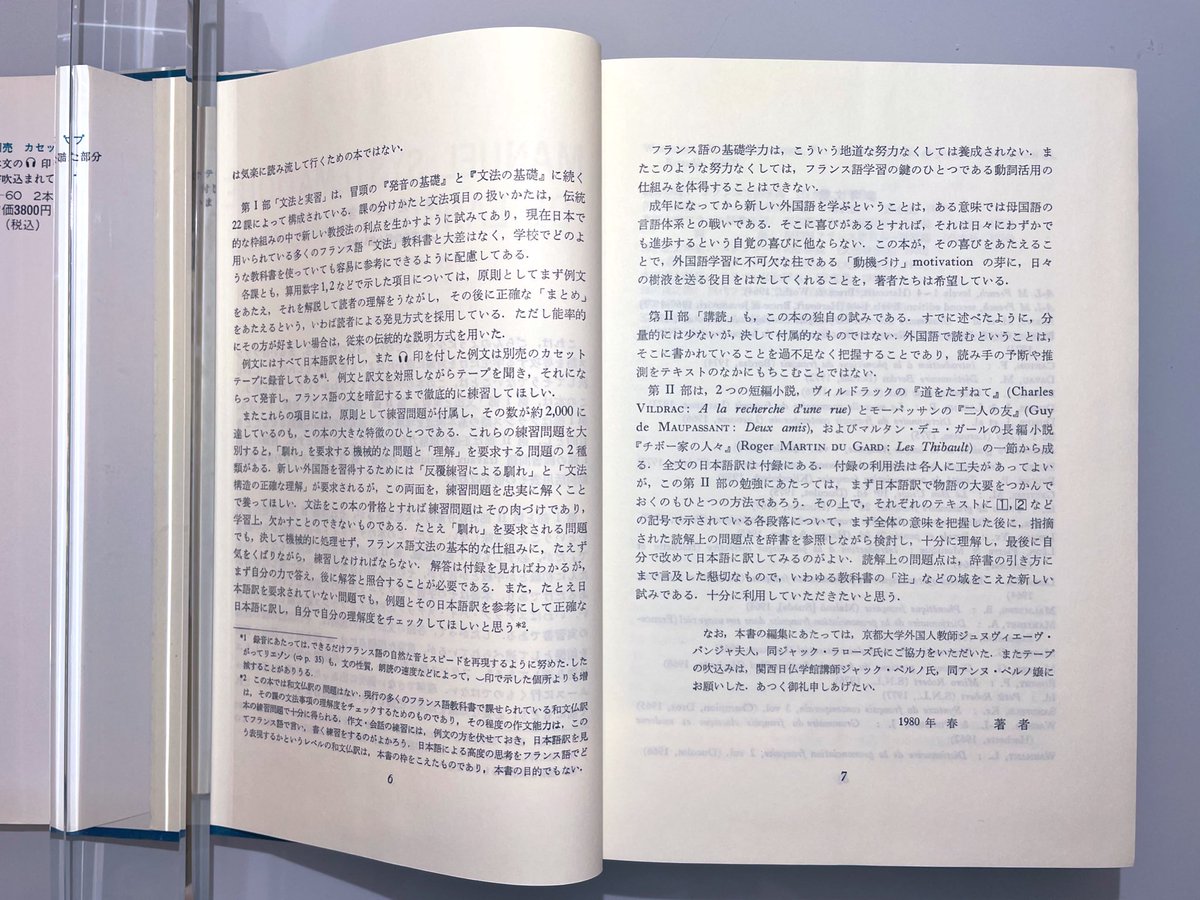 別売 カセッ
本文の🎧印
吹込まれて
-60 2本
価3800円
(税込)
テープ
部分
は気楽に読み流して行くための本ではない.
第Ⅰ部「文法と実習」は，冒頭の『発音の基礎』と『文法の基礎』に続く
22課によって構成されている．課の分けかたと文法項目の扱いかたは，伝統
的な枠組みの中で新しい教授法の利点を生かすように試みてあり，現在日本で
用いられている多くのフランス語「文法」教科書と大差はなく，学校でどのよ
うな教科書を使っていても容易に参考にできるように配慮してある．
各課とも，算用数字1, 2などで示した項目については，原則としてまず例文
をあたえ，それを解説して読者の理解をうながし，その後に正確な「まとめ」
をあたえるという，いわば読者による発見方式を採用している．ただし能率的
にその方が好ましい場合は，従来の伝統的な説明方式を用いた．
例文にはすべて日本語訳を付し，また🎧印を付した例文は別売のカセット
テープに録音してある*1．例文と訳文を対照しながらテープを聞き，それにな
らって発音し，フランス語の文を暗記するまで徹底的に練習してほしい．
またこれらの項目には，原則として練習問題が付属し，その数が約2,000に
達しているのも，この本の大きな特徴のひとつである．これらの練習問題を大
別すると，「馴れ」を要求する機械的な問題と「理解」を要求する問題の2種
類がある．新しい外国語を習得するためには「反覆練習による馴れ」と「文法
構造の正確な理解」が要求されるが，この両面を，練習問題を忠実に解くこと
で養ってほしい．文法をこの本の骨格とすれば練習問題はその肉づけであり，
学習上，欠かすことのできないものである．たとえ「馴れ」を要求される問題
でも，決して機械的に処理せず，フランス語文法の基本的な仕組みに，たえず
気をくばりながら，練習しなければならない．解答は付録を見ればわかるが，
まず自分の力で答え，後に解答と照合することが必要である．また，たとえ日
本語訳を要求されていない問題でも，例題とその日本語訳を参考にして正確な
日本語に訳し，自分で自分の理解度をチェックしてほしいと思う*2．
*1 録音にあたっては，できるだけフランス語の自然な音とスピードを再現するように努めた．した
がってリエゾン(⇨p. 35)も，文の性質，朗読の速度などによって，‿印で示した個所よりも増
減することがありうる．
*2 この本では和文仏訳の問題はない．現行の多くのフランス語教科書で課せられている和文仏訳
は，その課の文法事項の理解度をチェックするためのものであり，その程度の作文能力は，この
本の練習問題で十分に得られる．作文・会話の練習には，例文の方を伏せておき，日本語訳を見
てフランス語で言い，書く練習をするのがよかろう．日本語による高度の思考をフランス語でど
う表現するかというレベルの和文仏訳は，本書の枠をこえたものであり，本書の目的でもない．
6
フランス語の基礎学力は，こういう地道な努力なくしては養成されない．ま
たこのような努力なくしては，フランス語学習の鍵のひとつである動詞活用の
仕組みを体得することはできない．
成年になってから新しい外国語を学ぶということは，ある意味では母国語の
言語体系との戦いである．そこに喜びがあるとすれば，それは日々にわずかで
も進歩するという自覚の喜びに他ならない．この本が，その喜びをあたえるこ
とで，外国語学習に不可欠な柱である「動機づけ」motivation の芽に，日々
の樹液を送る役目をはたしてくれることを，著者たちは希望している．
第Ⅱ部「講読」も，この本の独自の試みである．すでに述べたように，分
量的には少ないが，決して付属的なものではない．外国語で読むということは，
そこに書かれていることを過不足なく把握することであり，読み手の予断や推
測をテキストのなかにもちこむことではない．
第Ⅱ部は，2つの短編小説，ヴィルドラックの『道をたずねて』(Charles
VILDRAC: A la recherche d'une rue) とモーパッサンの『二人の友』(Guy
de MAUPASSANT: Deux amis)，およびマルタン・デュ・ガールの長編小説
『チボー家の人々』(Roger MARTIN DU GARD: Les Thibault) の一節から成
る．全文の日本語訳は付録にある．付録の利用法は各人に工夫があってよい
が，この第Ⅱ部の勉強にあたっては，まず日本語訳で物語の大要をつかんで
おくのもひとつの方法であろう．その上で，それぞれのテキストに[1], [2]など
の記号で示されている各段落について，まず全体の意味を把握した後に，指摘
された読解上の問題点を辞書を参照しながら検討し，十分に理解し，最後に自
分で改めて日本語に訳してみるのがよい．読解上の問題点は，辞書の引き方に
まで言及した懇切なもので，いわゆる教科書の「注」などの域をこえた新しい
試みである．十分に利用していただきたいと思う．
なお，本書の編集にあたっては，京都大学外国人教師ジュヌヴィエーヴ・
パンジャ夫人，同ジャック・ラローズ氏にご協力をいただいた．またテープ
の吹込みは，関西日仏学館講師ジャック・ベルノ氏，同アンヌ・ベルノ嬢に
お願いした．あつく御礼申しあげたい．
1980年 春 著者
7